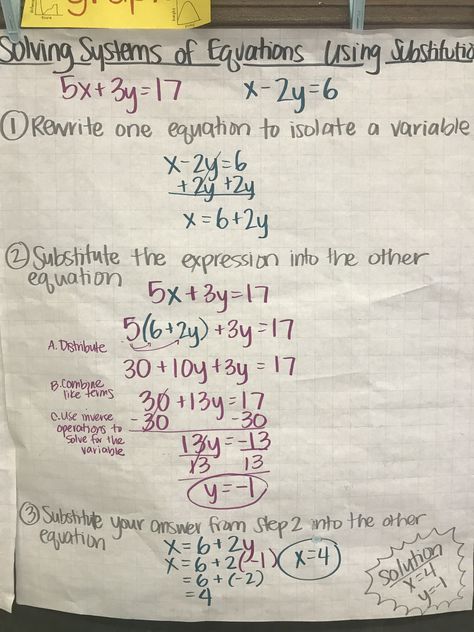 Solving Systems of Equations Using Substitutio
5x+3y=17 x-2y=6
① Rewrite one equation to isolate a variable
x-2y=6
+2y +2y
x=6+2y
② Substitute the expression into the other
equation
5x+3y=17
5(6+2y)+3y=17
A. Distribute
30+10y+3y=17
B. Combine
like terms
30+13y=17
C. Use inverse
operations to
solve for the
variable
-30 -30
13y=-13
13 13
y=-1
③ Substitute your answer from Step 2 into the other
equation
x=6+2y
x=6+2(-1) x=4
=6+(-2)
=4
Solution
x=4
y=-1